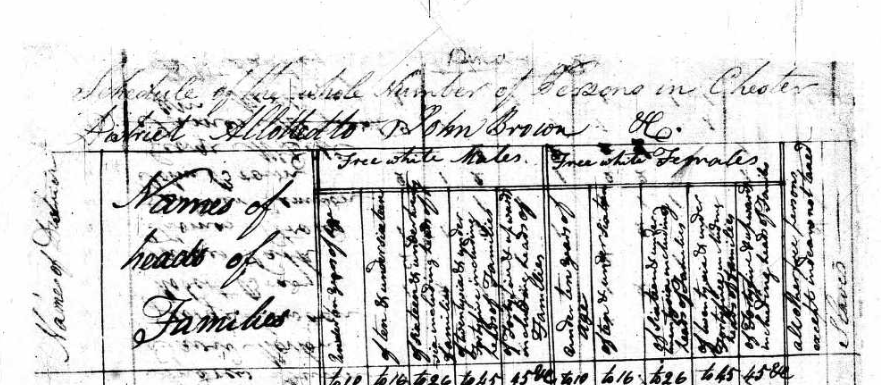 Schedule of the whole Number of Persons in Chester
District Allotted to John Brown &c.
Names of District
Names of
heads of
Families
Free white Males
under ten years of age
of ten & under sixteen
of sixteen & under twenty six including heads of families
of twenty six & under forty five including heads of Families
of forty five & upwards including heads of Families
Free white Females
under ten years of age
of ten & under sixteen
of sixteen & under twenty six including heads of families
of twenty six & under forty five including heads of families
of forty five & upwards including heads of Families
all other free persons except Indians not taxed
Slaves
to 10 to 16 to 26 to 45 45 &c to 10 to 16 to 26 to 45 45 &c